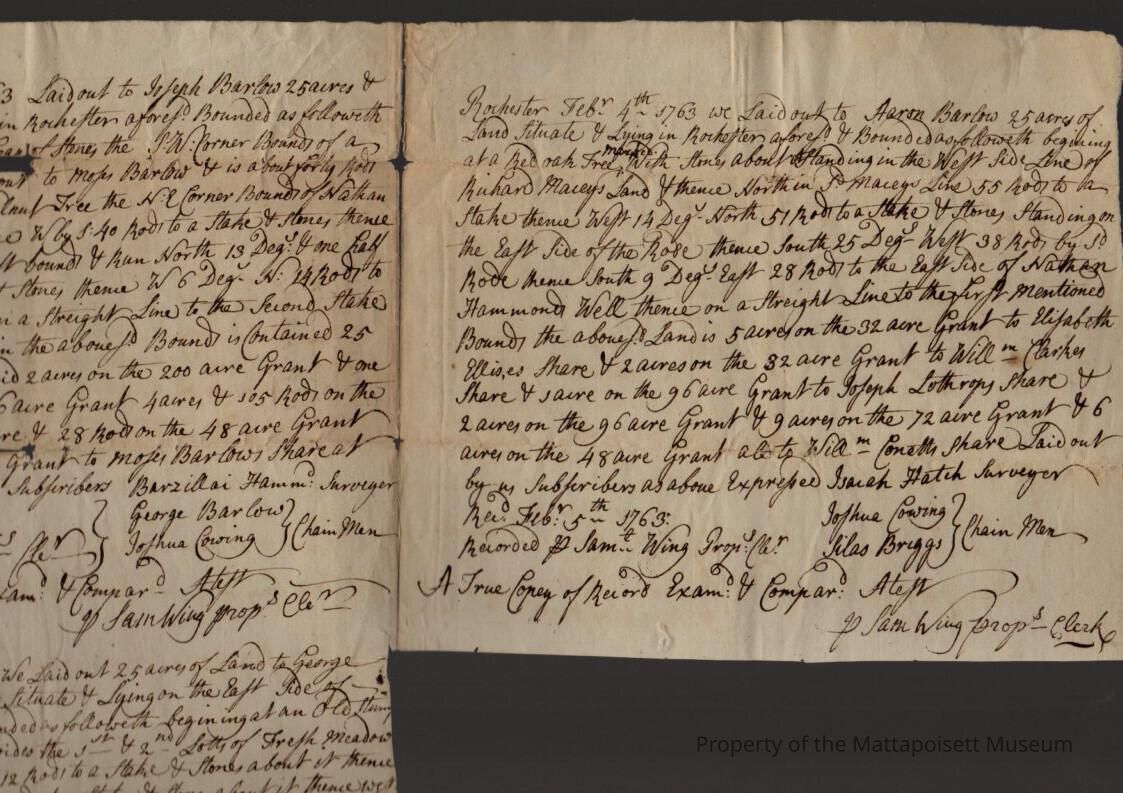 3 Laid out to Joseph Barlow 25 acres &
in Rochester aforesd Bounded as followeth
of Stones the S:W: Corner Bounds of a
out to Moses Barlow & is about forty Rods
Tree the N:E Corner Bounds of Nathan
W by S: 40 Rods to a Stake & Stones thence
bound & Run North 13 Degs & one half
Stones thence W 6 Degs N: 24 Rods to
in a Streight Line to the Second Stake
in the abouesd Bounds is Contained 25
2 acres on the 200 acre Grant & one
6 acre Grant 4 acres & 105 Rods on the
& 28 Rods on the 48 acre Grant
Grant to Moses Barlows Share at
Subscribers Barzillai Hammd: Surveyer
George Barlow
Joshua Cowing } Chain Men
Cler
& Compard Atest
P Sam Wing Props Cler
We Laid out 25 acres of Land to George
Situate & Lying on the East Side of
as followeth begining at an Old Stump
the 1st & 2nd Lotts of Fresh Meadow
12 Rods to a Stake & Stones about it thence
Rochester Febr 4th 1763 we Laid out to Aaron Barlow 25 acres of
Land Situate & Lying in Rochester aforesd & Bounded as followeth begining
at a Red oak Tree marked With Stones about it Standing in the West Side Line of
Richard Maceys Land & thence North in Sd Maceys Line 55 Rods to a
Stake thence West 14 Degs North 51 Rods to a Stake & Stones Standing on
the East Side of the Rode thence South 25 Degs West 38 Rods by Sd
Rode thence South 9 Degs East 28 Rods to the East Side of Nathan
Hammonds Well thence on a Streight Line to the first Mentioned
Bounds the abouesd Land is 5 acres on the 32 acre Grant to Elisabeth
Ellises Share & 2 acres on the 32 acre Grant to Willm Clarkes
Share & 1 acre on the 96 acre Grant to Joseph Lothrops Share &
2 acres on the 96 acre Grant & 9 acres on the 72 acre Grant & 6
acres on the 48 acre Grant all to Willm Conatts Share Laid out
by us Subscribers as aboue Expressed Isaiah Hatch Surveyer
Recd Febr 5th 1763:
Joshua Cowing
Silas Briggs } Chain Men
Recorded P Samll Wing Props: Cler
A True Copey of Record Examd: & Compard: Atest
P Sam Wing Props Clerk
Property of the Mattapoisett Museum